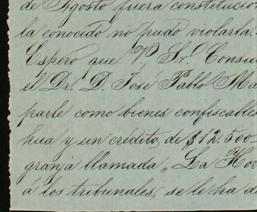 de Agosto fuera constitucion
la conocido no pudo violarla.
Espero que V. Sr. Consu
el Dr. D. José Pablo Ma
parte como bienes confiscables
hua y un crédito de $12.500
granja llamada "La
á los tribunales, se le ha d